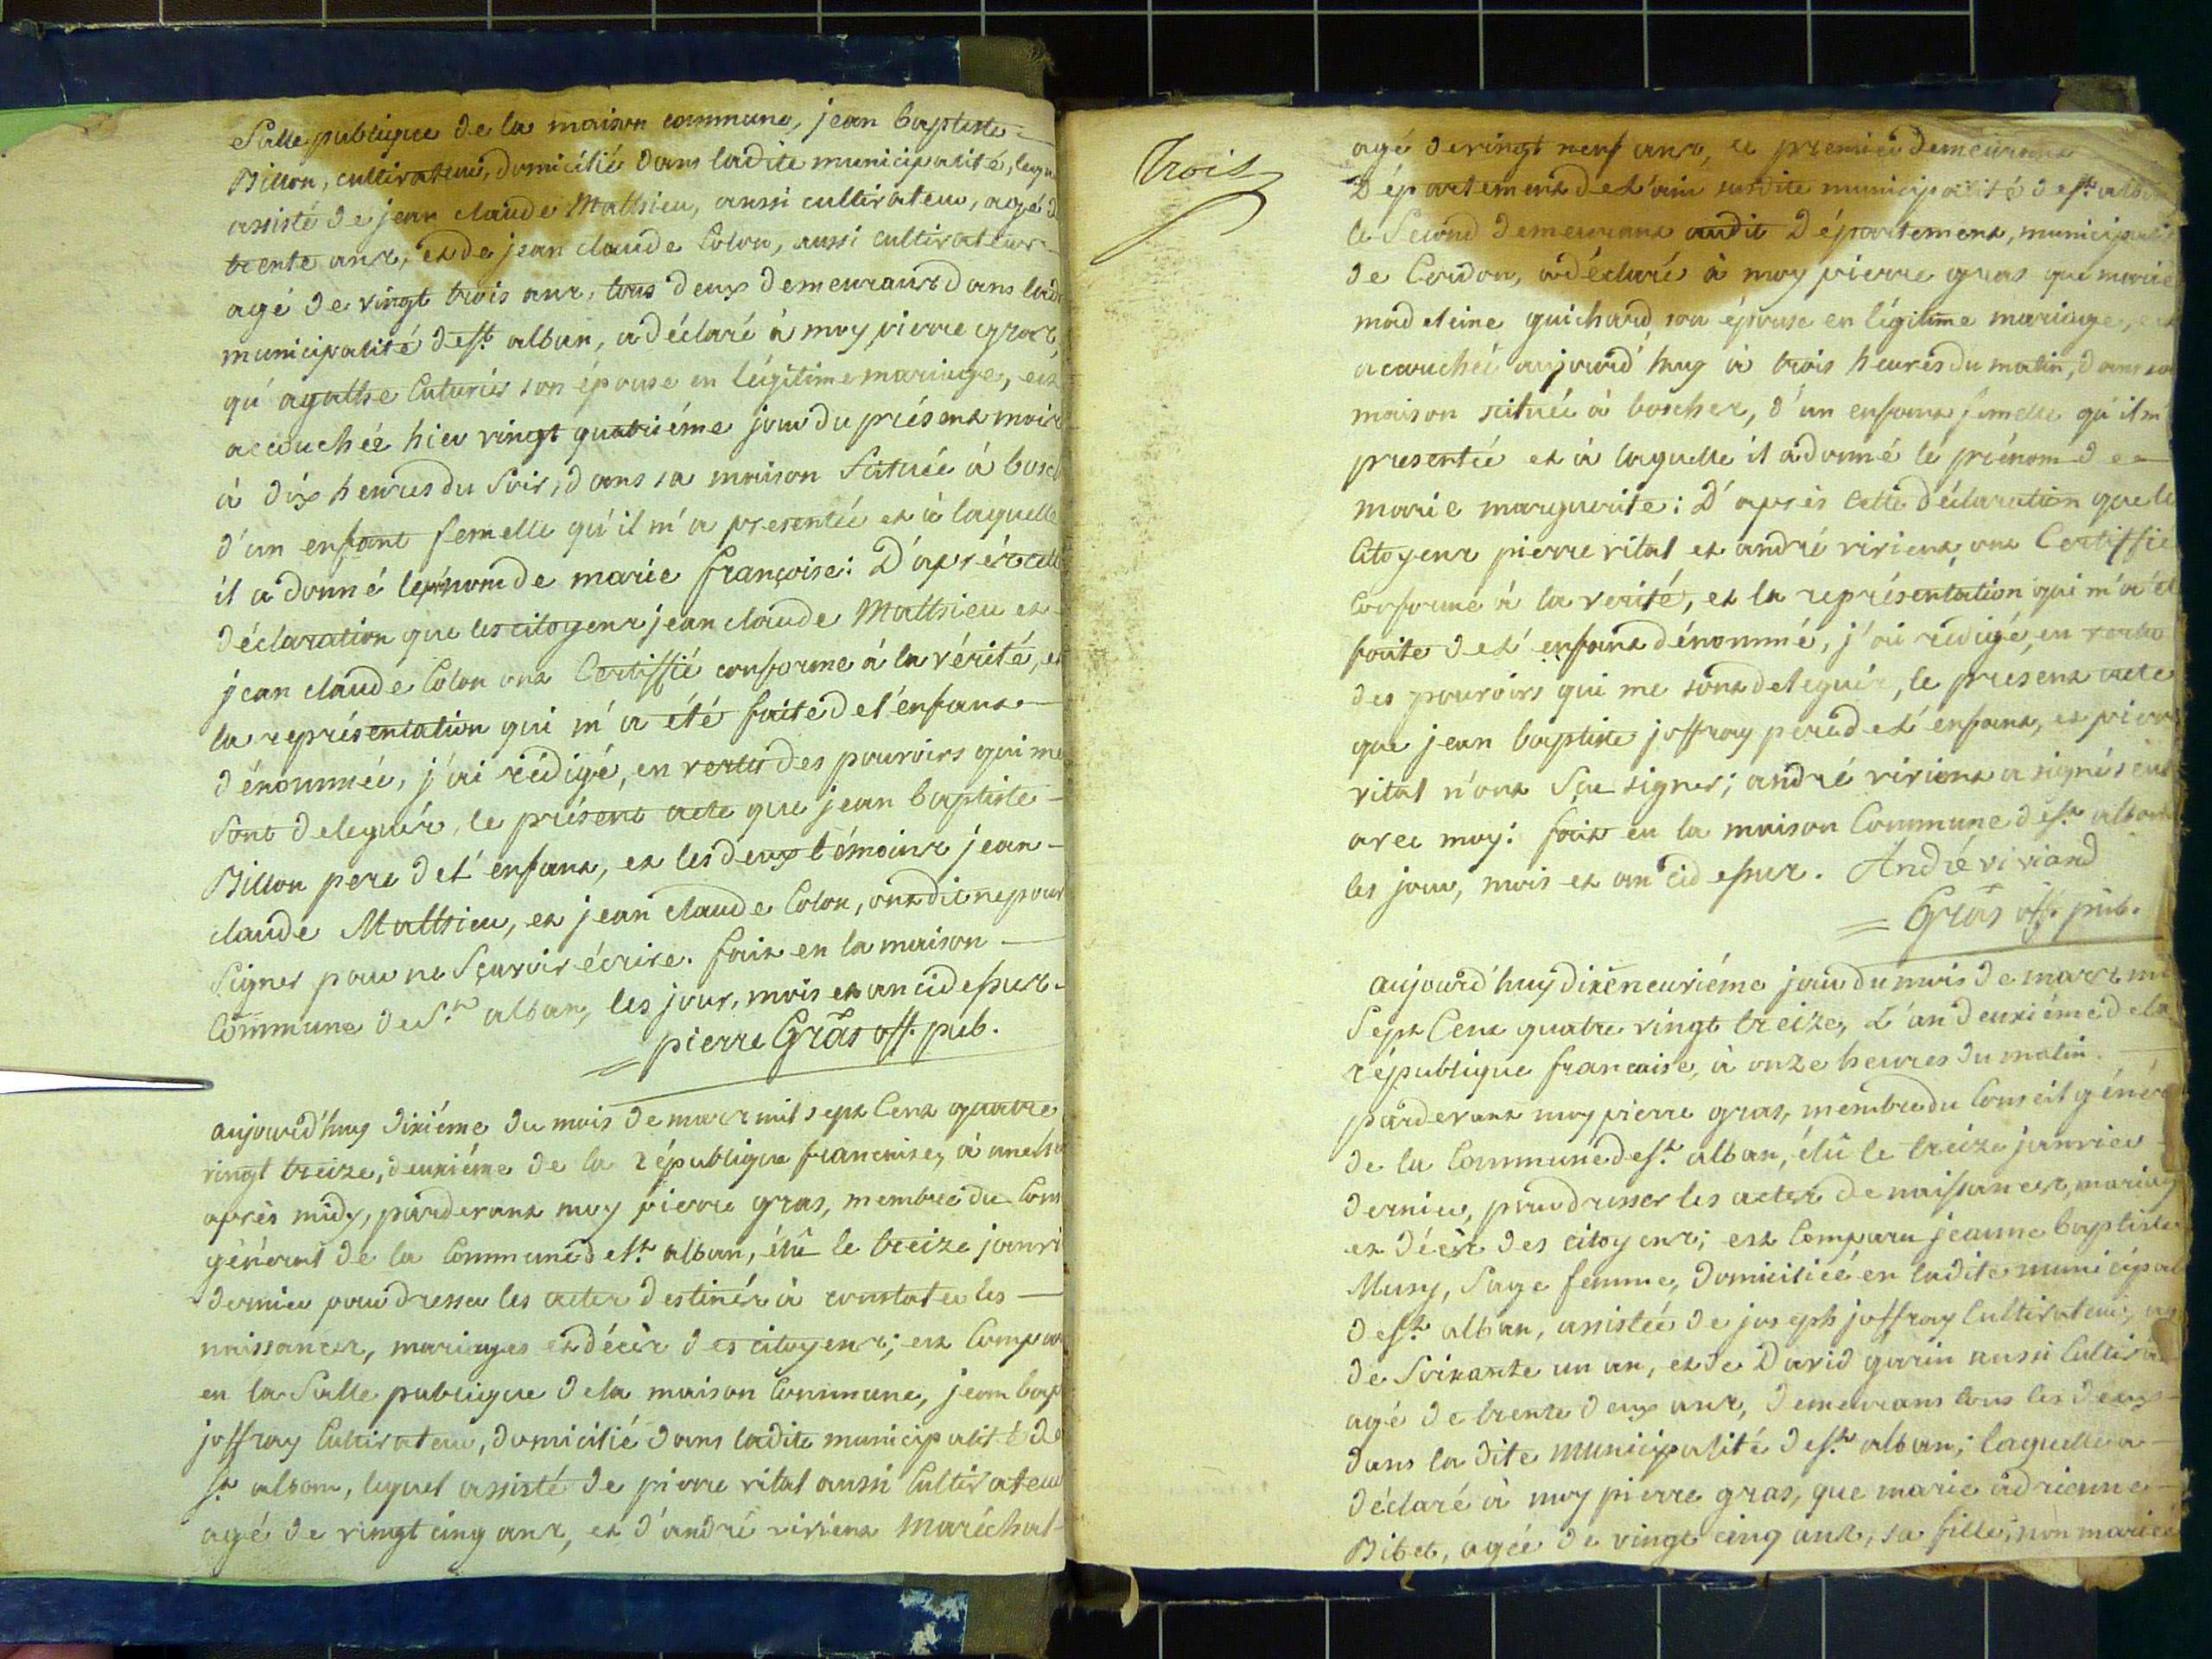 Salle publique de la maison commune, jean baptiste
Billon, cultivateur, domicilié dans ladite municipalité, lequ
assisté de jean claude Matthieu, aussi cultivateur, agé d
trente ans, et de jean claude Colon, aussi cultivateur
agé de vingt trois ans, tous deux demeurans dans lad
municipalité de st alban, a déclaré à moy pierre gras,
qu'agathe Cuturier son épouse en légitime mariage, est
accouchée hier vingt quatriéme jour du présent mois
à dix heures du soir, dans sa maison Scituée à bosc
d'un enfant femelle qu'il m'a presentée et à laquelle
il a donné le prénom de marie françoise: D'après cette
déclaration que les citoyens jean claude Matthieu et
jean claude Colon ont Certiffié conforme à la vérité, et
la représentation qui m'a eté faite de l'enfant
dénommée, j'ai rédigé, en vertu des pouvoirs qui me
sont delegués, le présent acte que jean baptiste
Billon pere de l'enfant, et les deux témoins jean
claude Matthieu, et jean claude Colon, ont dit ne pour
Signer pour ne Sçavoir écrire. fait en la maison
Commune de St alban, les jour, mois et an cidessus.
pierre Gras off. pub.
aujourd'huy dixiéme du mois de mars mil sept Cent quatre
vingt treize, deuxiéme de la république francaise, à une heu
après midy, pardevant moy pierre gras, membre du Cons
général de la Commune de st alban, élû le treize janvi
dernier pour dresser les actes destinés à constater les
naissances, mariages et décès des citoyens; est Compar
en la Salle publique de la maison Commune, jean bap
joffray Cultivateur, domicilié dans ladite municipalité de
st alban, lequel assisté de pierre vital aussi Cultivateur
agé de vingt cinq ans, et d'andré vivient Maréchal
Trois
agé de vingt neuf ans, le premier demeurant
Département de l'ain susdite municipalité de st alban
le Second demeurant audit Département, municipalit
de Cerdon, a déclaré à moy pierre gras que marie
madeleine guichard son épouse en légitime mariage, est
accouchée aujourd'huy à trois heures du matin, dans sa
maison scituée à boscher, d'un enfant femelle qu'il m'
presentée et à laquelle il a donné le prénom de
marie marguerite: D'après cette déclaration que le
Citoyens pierre vital et andré vivient ont Certiffié
Conforme à la verité, et la représentation qui m'a ét
faite de l'enfant dénommé, j'ai redigé, en vertu
des pouvoirs qui me sont delegués, le present acte
que jean baptiste joffray pere de l'enfant, et pierre
vital n'ont Sçu signer; andré vivient a signé seul
avec moy: fait en la maison Commune de st alban
les jour, mois et an cidessus. André viviand
Gras off. pub.
aujourd'huy dixeneuviéme jour du mois de mars mil
Sept Cent quatre vingt treize, L'an deuxiéme de la
république francaise, à onze heures du matin
pardevant moy pierre gras, membre du Conseil génér
de la Commune de st alban, élû le treize janvier
dernier, pour dresser les actes de naissances, mariag
et décès des citoyens; est Comparu jeanne baptiste
Musy, Sage femme, domiciliée en ladite municipal
de st alban, assistée de joseph joffray Cultivateur, ag
de Soixante un an, et de David garin aussi Cultiva
agé de trente deux ans, demeurans tous les deux
dans la dite municipalité de st alban; laquelle a
déclaré à moy pierre gras, que marie adrienne
Bibet, agée de vingt cinq ans, sa fille, non mariée